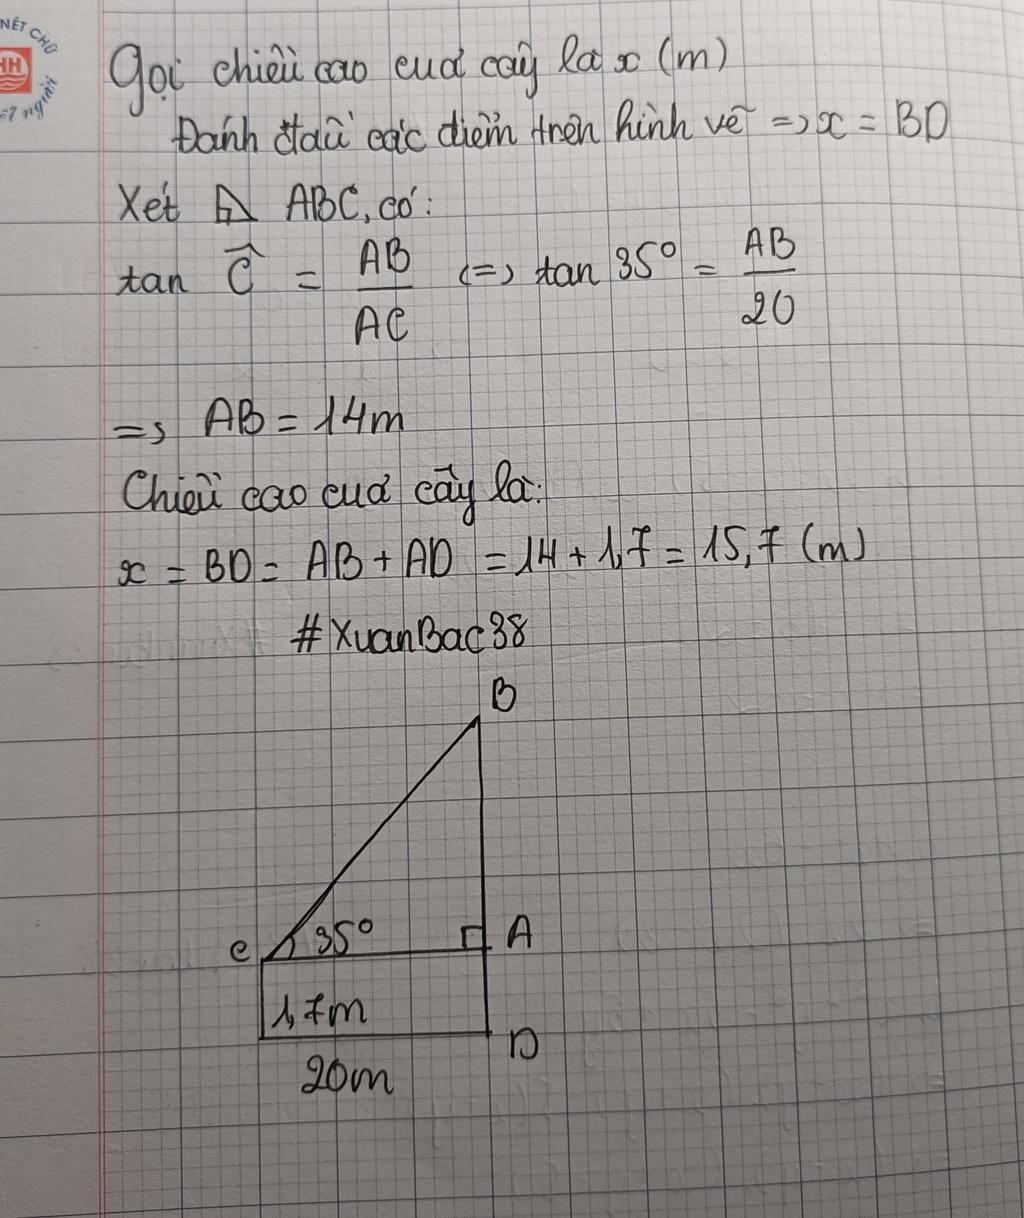 NÉT CHỮ
HH
nết người
Gọi chiều cao của cây là x (m)
Đánh dấu các điểm trên hình vẽ => x = BD
Xét ⊿ ABC, có:
tan Ĉ = AB/AC <=> tan 35° = AB/20
=> AB = 14m
Chiều cao của cây là:
x = BD = AB + AD = 14 + 1,7 = 15,7 (m)
#XuanBac38
B
C 35° A
1,7m
D
20m